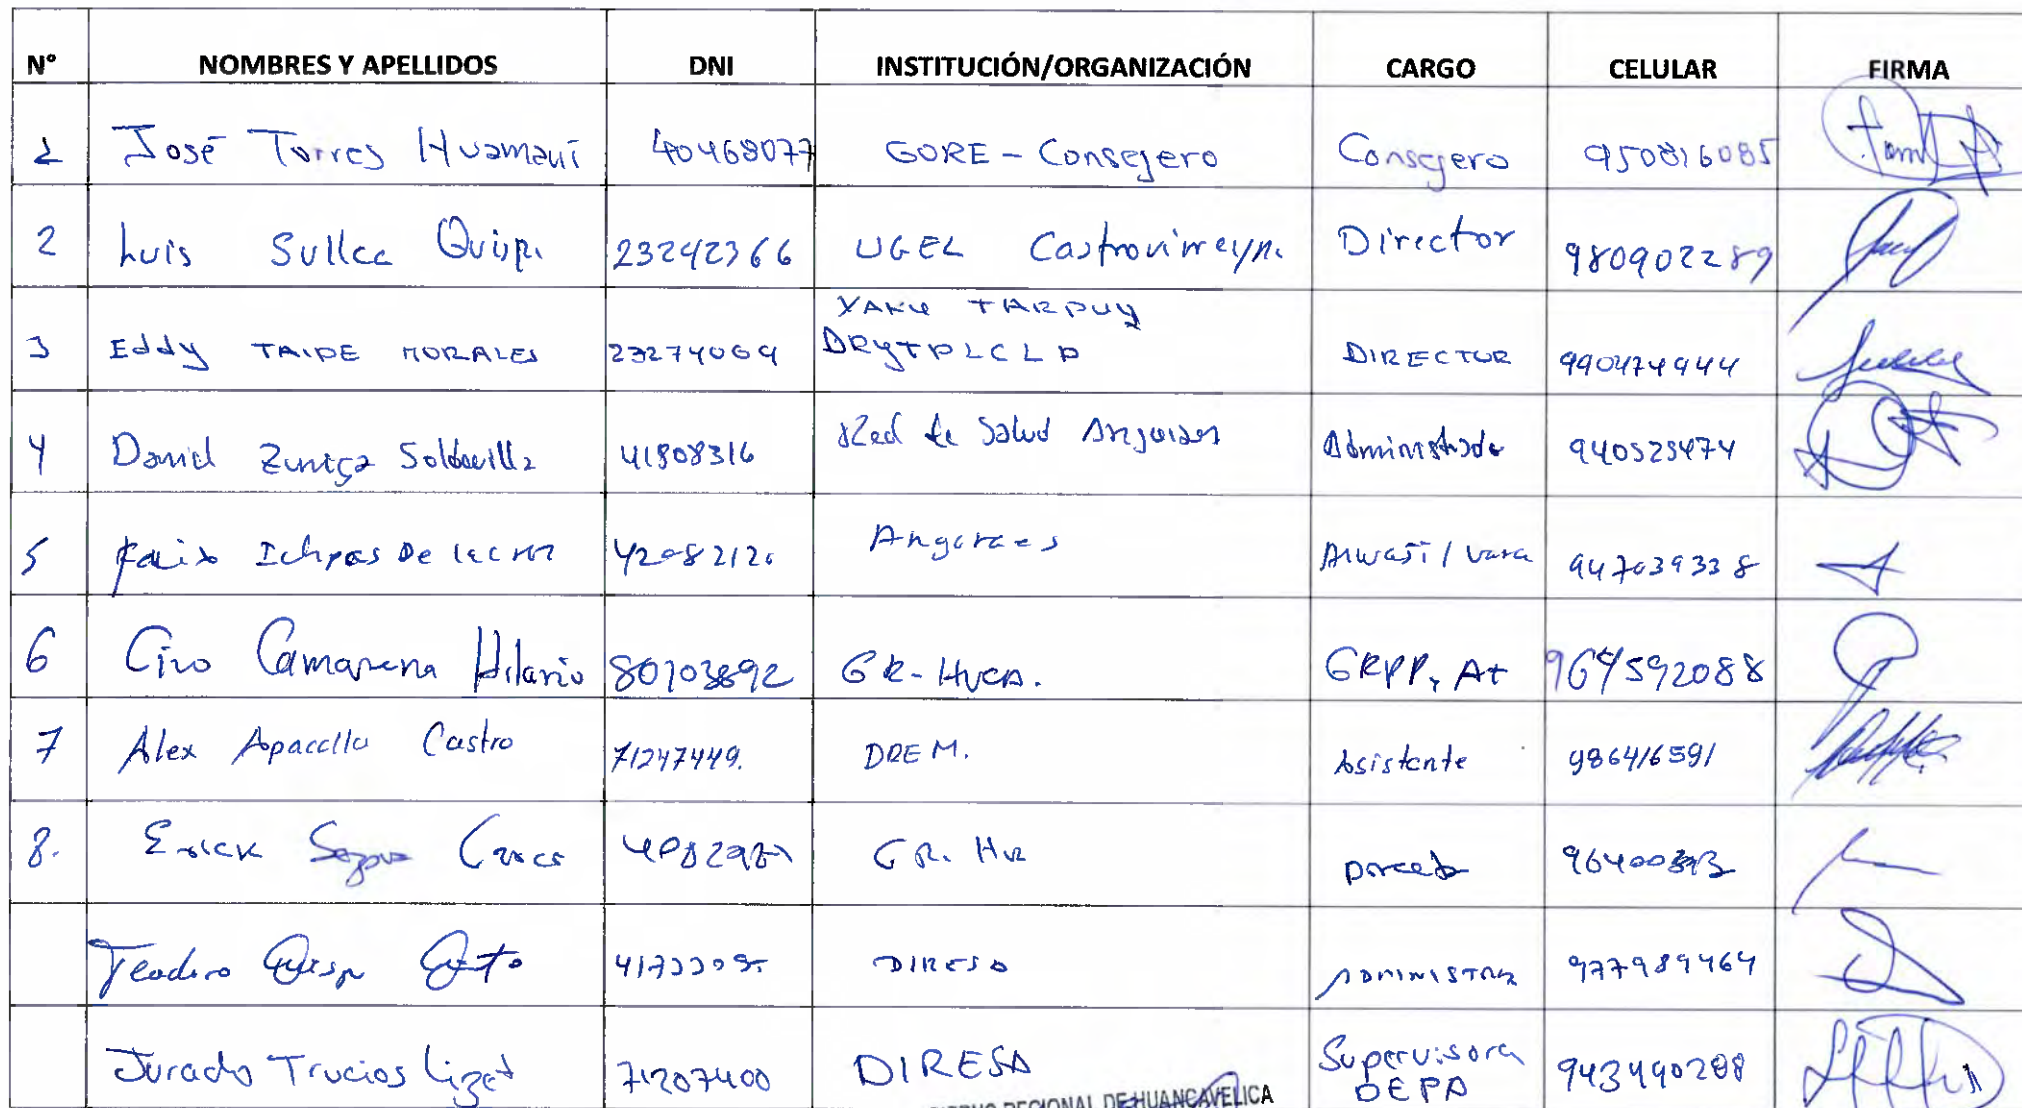 N° NOMBRES Y APELLIDOS DNI INSTITUCIÓN/ORGANIZACIÓN CARGO CELULAR FIRMA
1 José Torres Huamaní 40468077 GORE - Consejero Consejero 950816085
2 Luis Sullca Quisp. 23242366 UGEL Castrovirreyna Director 980902289
YAKU TARPUY
3 Eddy TAIPE MORALES 23274069 DIRECTOR 990474944
4 Daniel Zuniga Soldevilla 41808316 Red de Salud Angaraes Administrador 940525474
5 Ichpas De la Cruz 42082120 Angaraes 947039338
6 Ciro Camarena Hilario 80703892 GR-HVCA. GRPP, At 964592088
7 Alex Apaclla Castro 71247449. DREM. Asistente 986416591
8. Erick GR. Hv
Teodoro Quisp DIRESA ADMINISTRA 977989464
Jurado Trucios Lizet 71207400 DIRESA Supervisora 943490288
DEPA
REGIONAL DE HUANCAVELICA